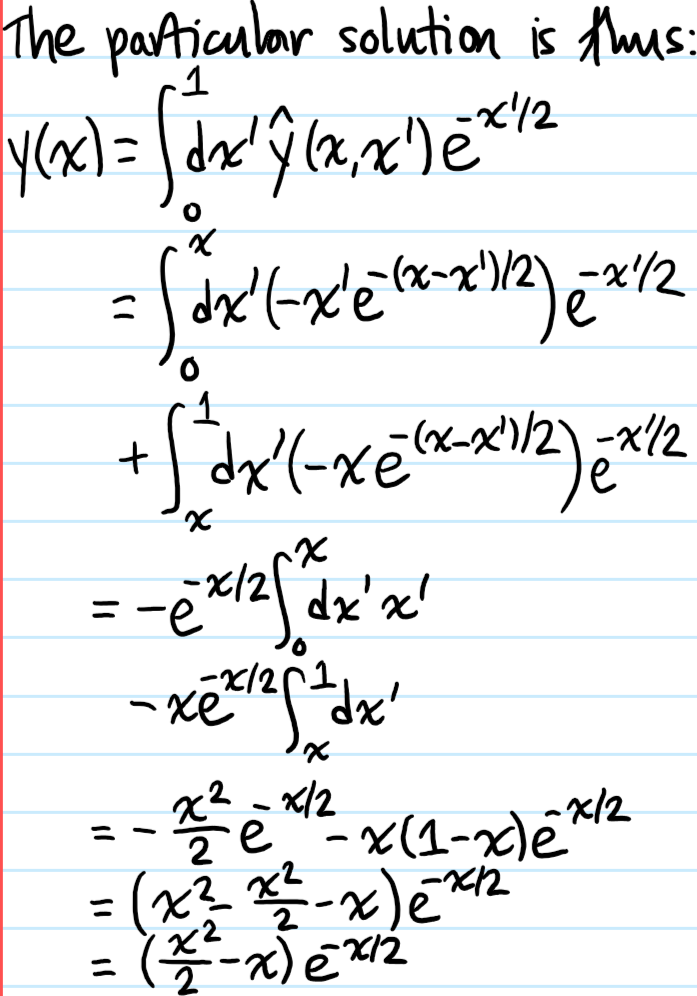 The particular solution is thus:
y(x) = ∫₀¹ dx' ŷ(x,x') e^{-x'/2}
= ∫₀ˣ dx' (-x' e^{-(x-x')/2}) e^{-x'/2}
+ ∫ₓ¹ dx' (-x e^{-(x-x')/2}) e^{-x'/2}
= -e^{-x/2} ∫₀ˣ dx' x'
- x e^{-x/2} ∫ₓ¹ dx'
= - x²/2 e^{-x/2} - x(1-x) e^{-x/2}
= (x² - x²/2 - x) e^{-x/2}
= (x²/2 - x) e^{-x/2}